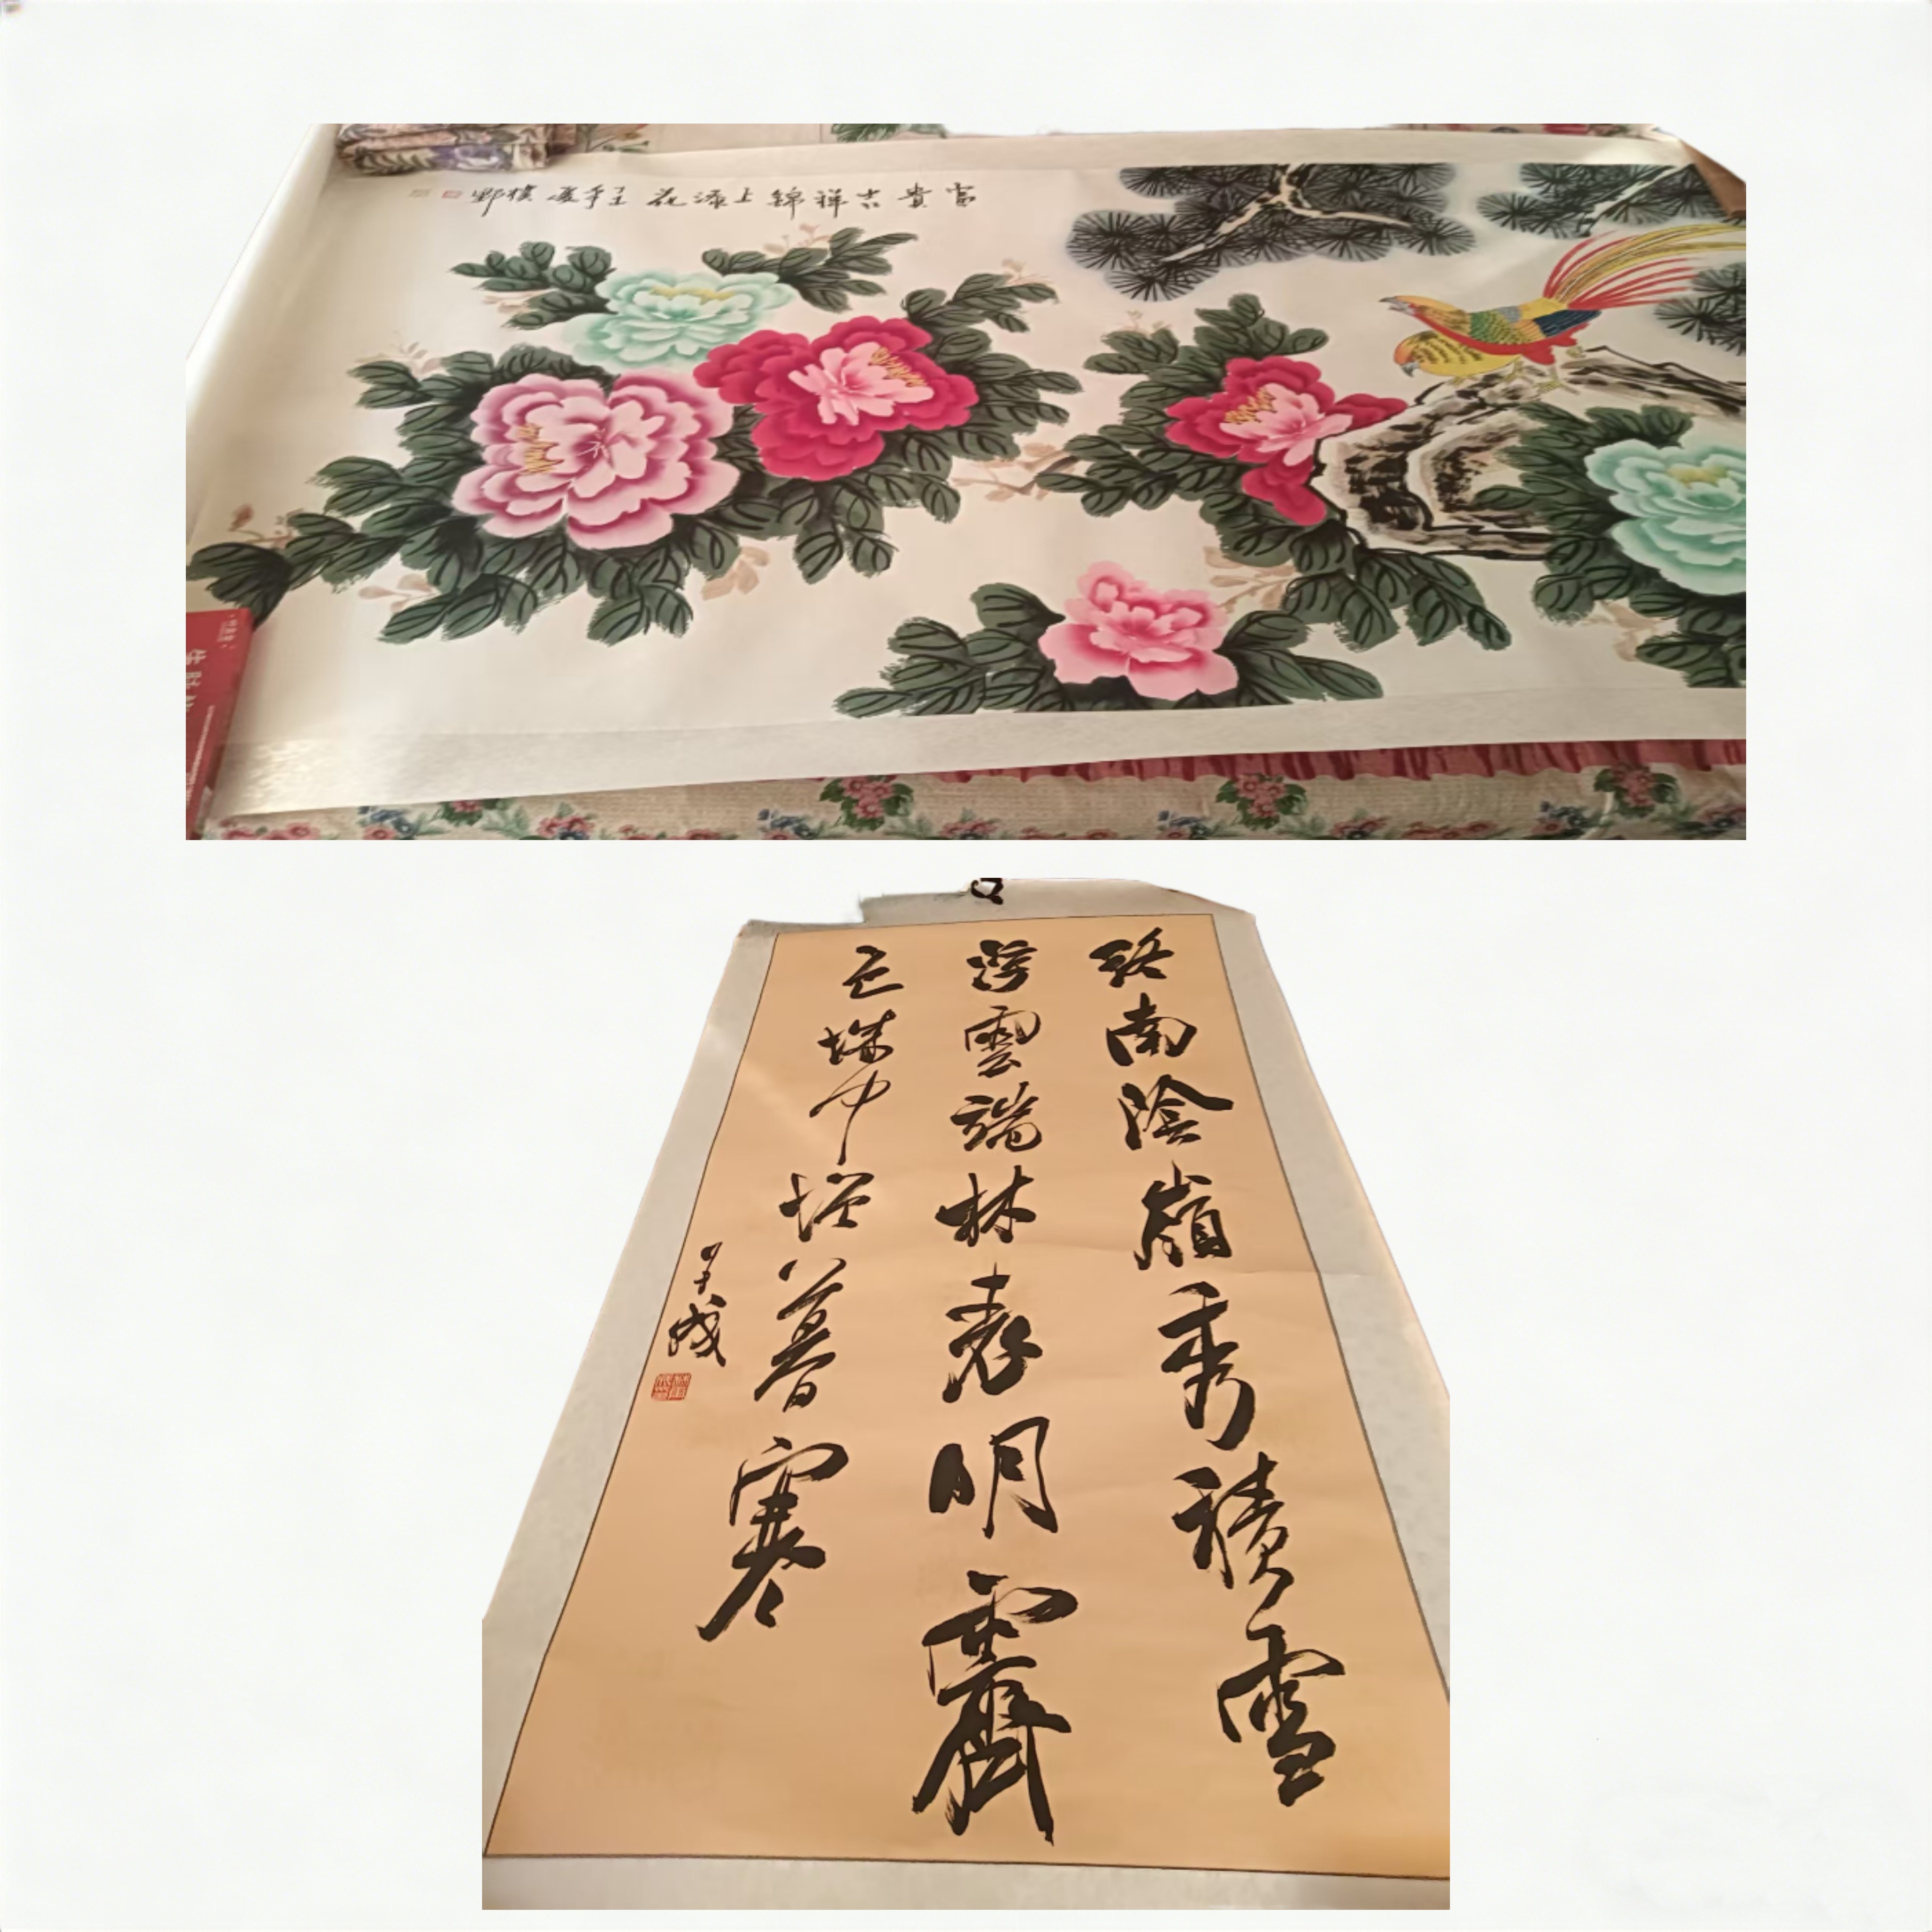 富貴吉祥錦上添花壬午夏樸野
終南陰嶺秀積雪
浮雲端林表明霽
色城中增暮寒